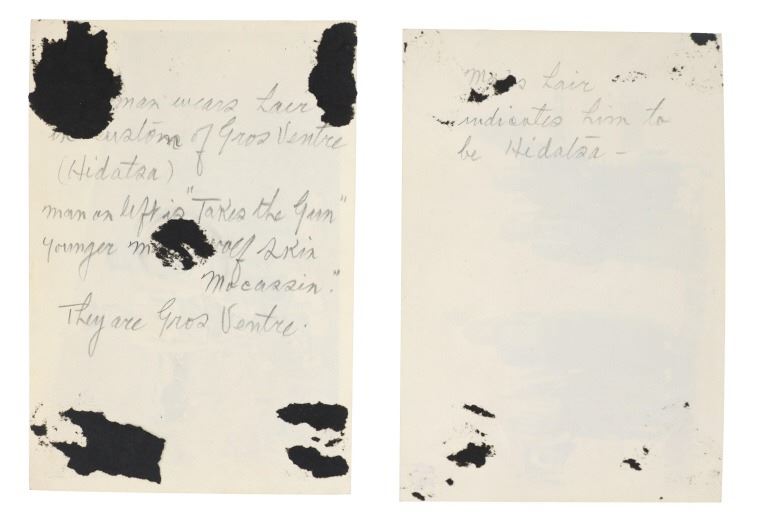 man wears hair
in custom of Gros Ventre
(Hidatsa)
man on left is "Takes the Gun"
younger wolf skin
Mocassin."
They are Gros Ventre.
hair
indicates him to
be Hidatsa –